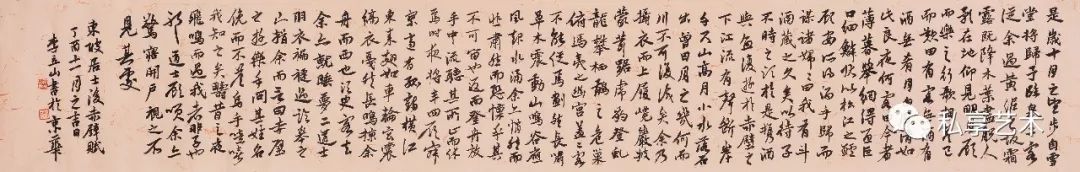 是歲十月之望步自雪
堂將歸于臨皋二客
從余過黃泥坂霜
露既降木葉盡脫人
影在地仰見明月顧
而樂之行歌相答已
而歎曰有客無酒有
酒無肴月白風清如
此良夜何客曰今者
薄暮舉網得魚巨
口細鱗狀似松江之鱸
顧安所得酒乎歸而
謀諸婦婦曰我有斗
酒藏之久矣以待子
不時之須於是攜酒
與魚復遊於赤壁之
下江流有聲斷岸
千尺山高月小水落石
出曾日月之幾何而
江山不可復識矣余乃
攝衣而上履巉巖披
蒙茸踞虎豹登虬
龍攀棲鶻之危巢
俯馮夷之幽宮蓋二客
不能從焉劃然長嘯
草木震動山鳴谷應
風起水涌余亦悄然而
悲肅然而恐凜乎其
不可留也返而登舟放
乎中流聽其所止而休
焉時夜將半四顧寂
寥適有孤鶴橫江
東來翅如車輪玄裳
縞衣戛然長鳴掠余
舟而西也須臾客去
余亦就睡夢二道士
羽衣蹁躚過臨皋之
下揖余而言曰赤壁
之遊樂乎問其姓名
俛而不答嗚呼噫嘻
我知之矣疇昔之夜
飛鳴而過我者非子也
耶道士顧笑余亦
驚寤開戶視之不
見其處
東坡居士後赤壁賦
丁酉十一月之吉日
李立山書於京華
私享艺术